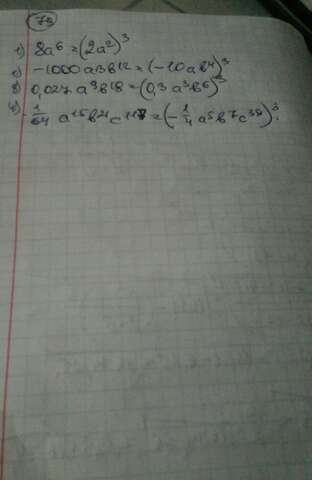 79
1) 8a⁶=(2a²)³
2) -1000a³b¹²=(-10ab⁴)³
3) 0,027a⁹b¹⁸=(0,3a³b⁶)³
4) -1/64 a¹⁵b²¹c¹¹⁷=(-1/4 a⁵b⁷c³⁹)³.